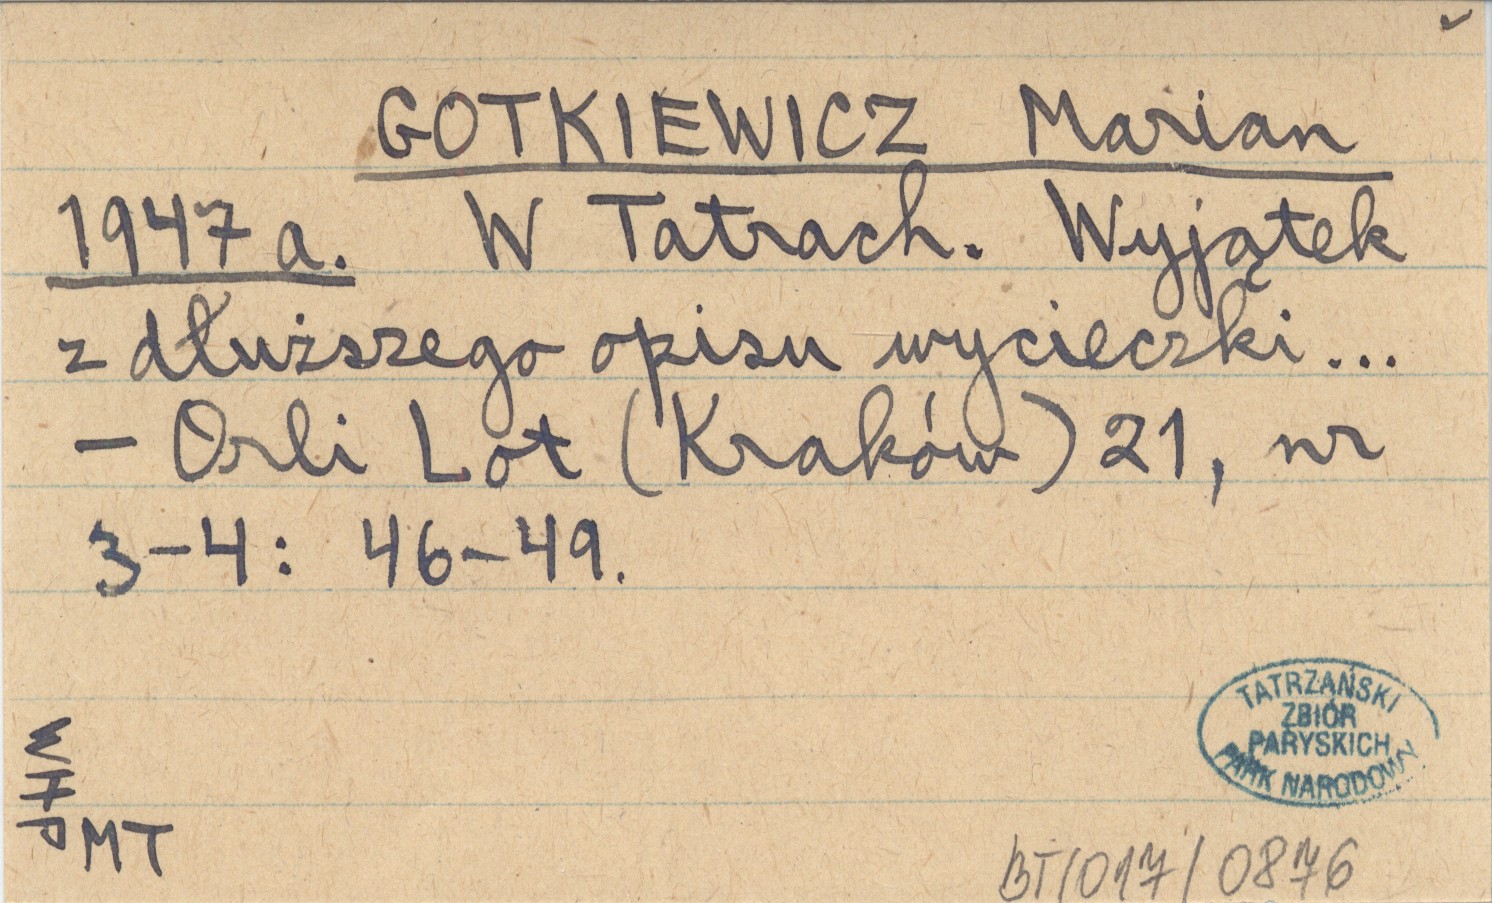 GOTKIEWICZ Marian
1947 a. W Tatrach. Wyjątek
z dłuższego opisu wycieczki...
– Orli Lot (Kraków) 21, nr
3–4: 46–49.
TATRZAŃSKI
ZBIÓR
PARYSKICH
PARK NARODOWY
MT
BT/017/0876